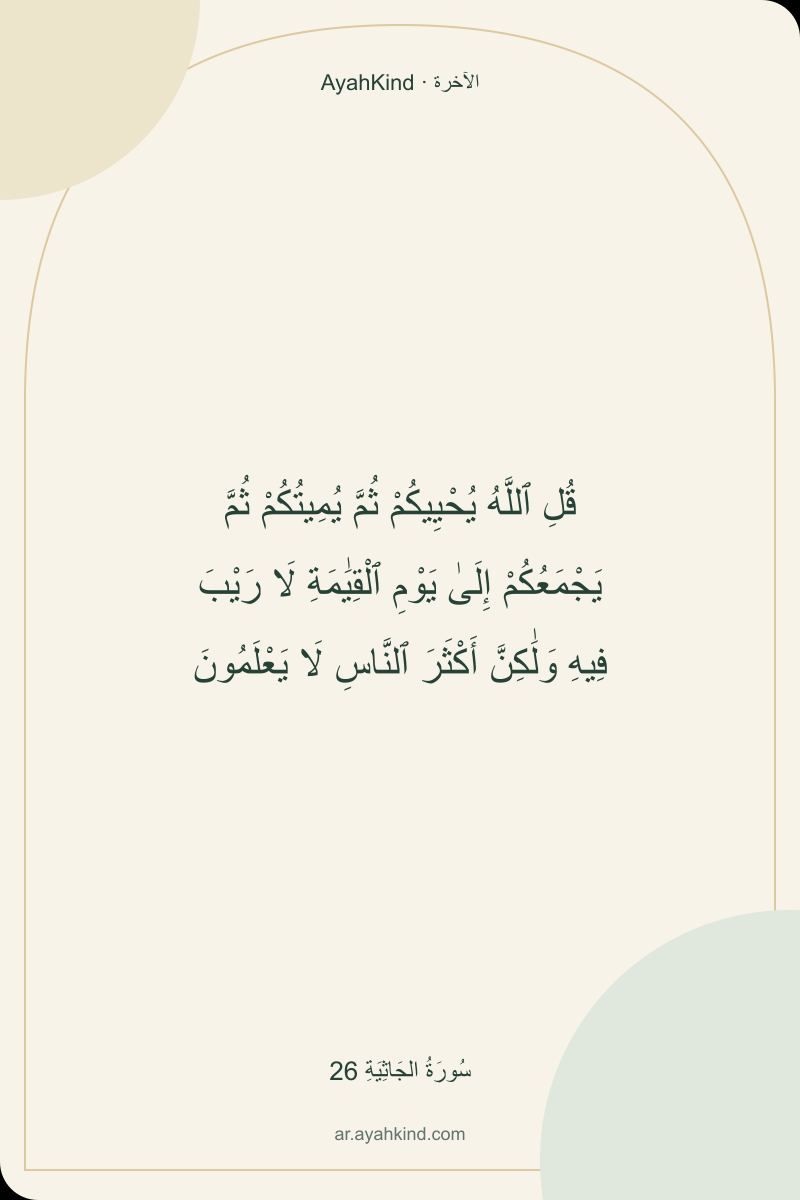 AyahKind · الآخرة
قُلِ ٱللَّهُ يُحْيِيكُمْ ثُمَّ يُمِيتُكُمْ ثُمَّ
يَجْمَعُكُمْ إِلَىٰ يَوْمِ ٱلْقِيَٰمَةِ لَا رَيْبَ
فِيهِ وَلَٰكِنَّ أَكْثَرَ ٱلنَّاسِ لَا يَعْلَمُونَ
سُورَةُ الجَاثِيَةِ 26
ar.ayahkind.com